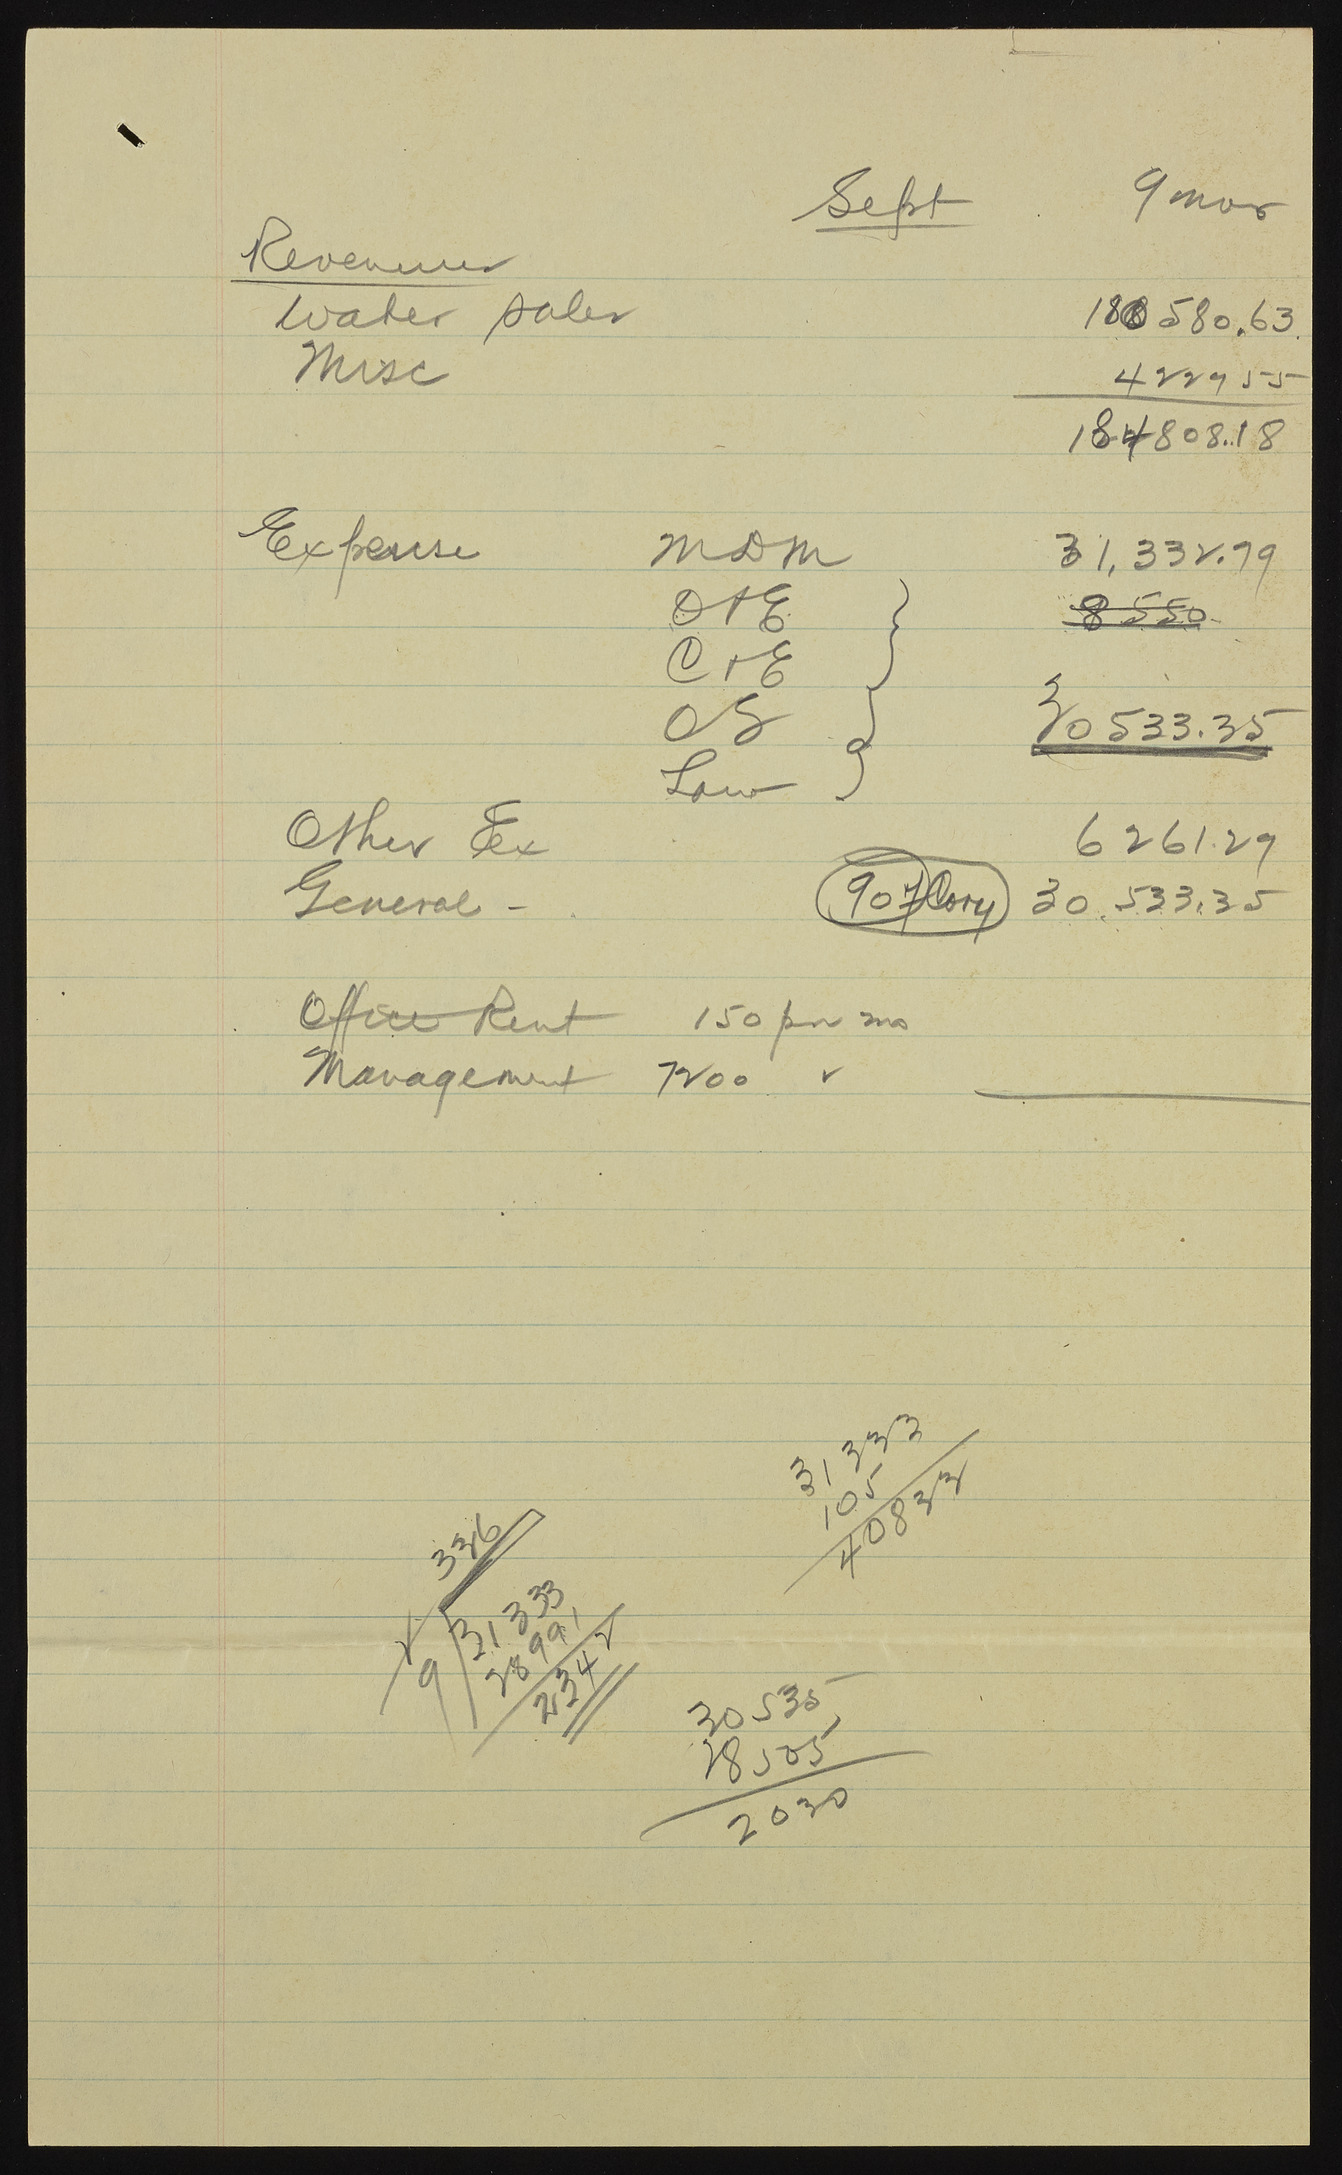 Sept 9 mos
Revenues
Water Sales 180 580.63
Misc 4227 55
184 808.18
Expense MDM 31,332.79
O+E 8550
C+E
OS 30533.35
Law
Other Ex 6261.29
General - 907 Cory 30,533.35
Office Rent 150 per mo
Management 7200 "
31333
105
40833
336
9 31333
28991
2342
30535
28505
2030